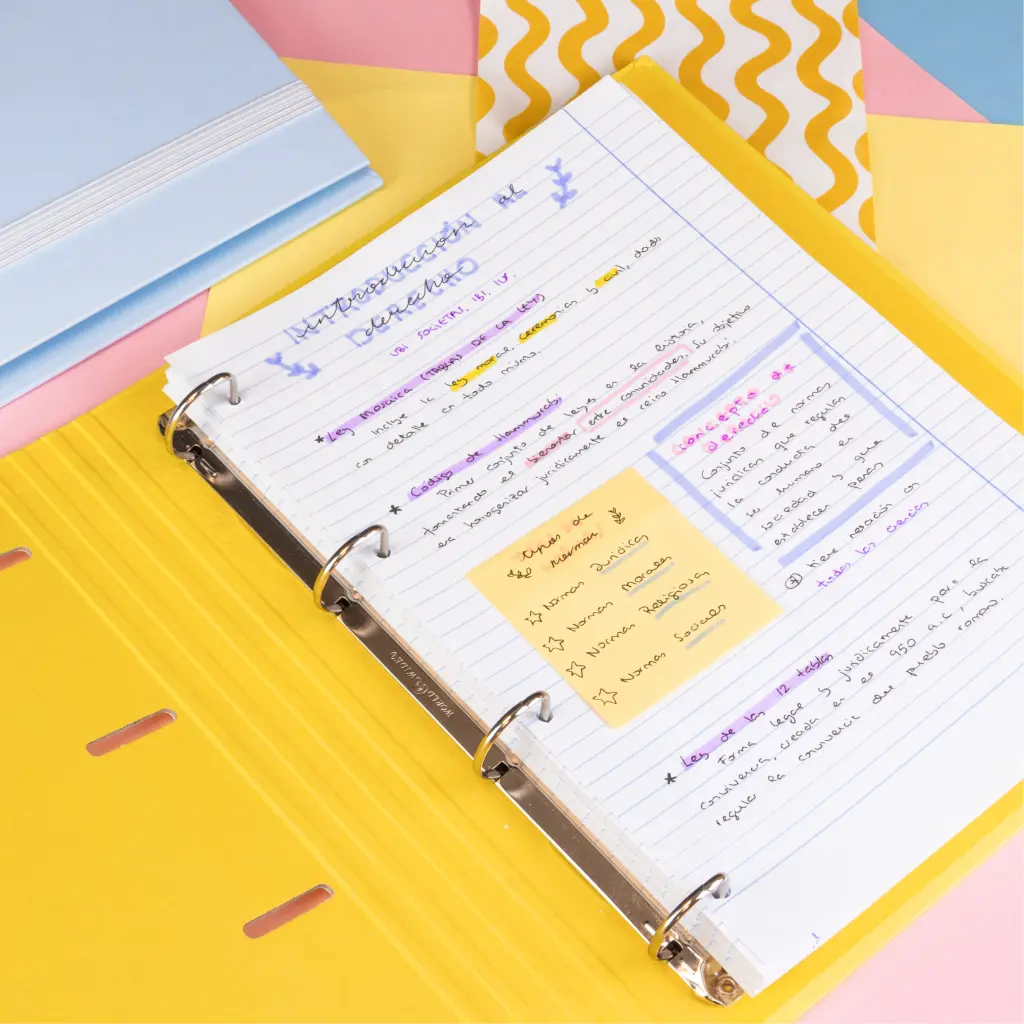 introducción al
derecho
INTRODUCCIÓN AL
DERECHO
UBI SOCIETAS, IBI, IUS
* Ley Mosaica (TABLAS DE LA LEY)
Incluye la ley moral, ceremonias y civil, dada
con detalle en todo mismo.
* Código de Hammurabi
Primer conjunto de leyes en la historia,
fomentando el bienestar entre comunidades. Su objetivo
era homogeneizar jurídicamente el reino Hammurabi.
concepto de
derecho
Conjunto de normas
jurídicas que regulan
la conducta del
ser humano en
sociedad y que
establece penas
tiene relación con
todas las ciencias
tipos de
normas
Normas Jurídicas
Normas Morales
Normas Religiosas
Normas Sociales
* Ley de las 12 tablas
Forma legal y jurídicamente para la
convivencia, creada en el 950 a.C, buscaba
regular la convivencia del pueblo romano.